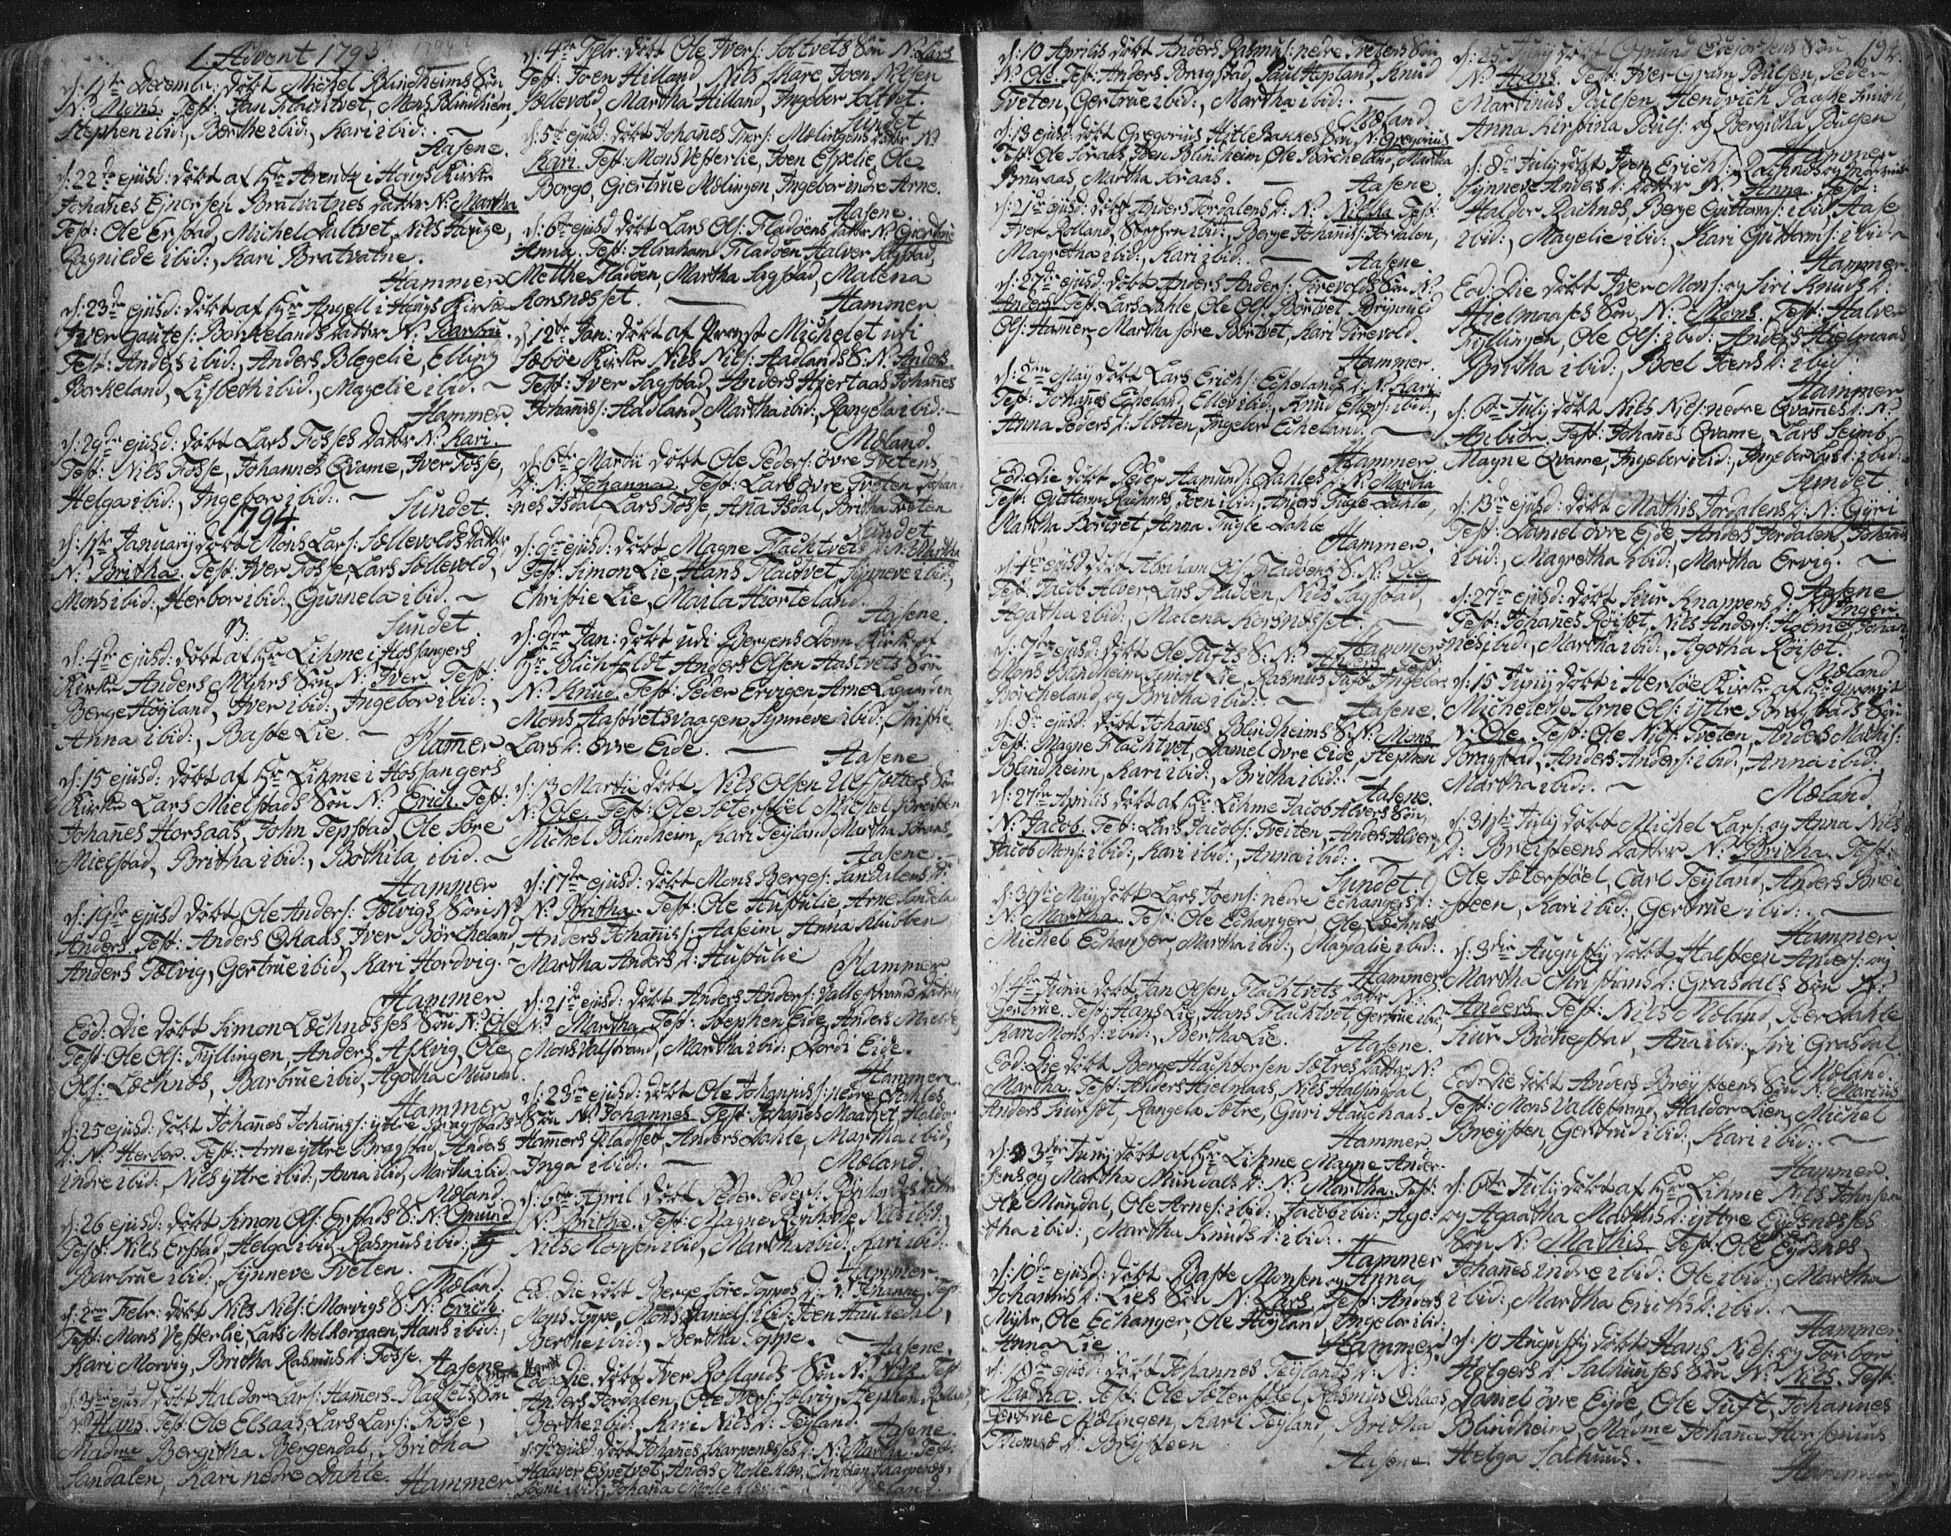 1. Advent 1793
d: 1ste Decembr: döbt Michel Blindheims Sön
N: Mons. Test: Jan Flachtvet, Mons Blindheim,
Stephen ibid:, Berthe ibid:, Kari ibid:.
Aasene.
d: 22de ejusd: döbt af Hr Arentz i Hougs Kirke
Johanes Ejnersen Bratvatnes datter N: Martha
Test: Ole Erstad, Michel Saltvet, Nils Houge,
Ragnilde ibid:, Kari Bratvatne.
Hammer
d: 23de ejusd: döbt af Hr Angell i Hougs Kirke
Iver Gautes: Borkelands datter N: Barbru
Test: Anders ibid:, Anders Blegelie, Elling
Borkeland, Lisbeth ibid:, Magelie ibid:
Hammer.
d: 29de ejusd: döbt Lars Fosses datter N: Kari.
Test: Niels Fosse, Johannes Qvame, Iver Fosse,
Helga ibid:, Ingebor ibid:.
Sundet.
1794.
d: 1ste January döbt Mons Lars: Sællevolds datter
N: Britha. Test: Iver Fosse, Lars Sællevold,
Mons ibid:, Herbor ibid:, Gunnela ibid:
Sundet.
d: 4de ejusd: döbt af Hr Lihme i Hossangers
Kirke Anders Myhrs Sön N: Iver. Test:
Berge Höyland, Iver ibid:, Ingebor ibid:,
Anna ibid:, Baste Lie.
Hamer
d: 15 ejusd: döbt af Hr Lihme i Hossangers
Kirke Lars Mielstads Sön N: Erich. Test:
Johanes Horsaas, John Tepstad, Ole Söre
Mielstad, Britha ibid:, Bothila ibid.
Hammer
d: 19de ejusd döbt Ole Anders: Tælvigs Sön N:
Anders. Test: Anders Okaas, Iver Börcheland,
Anders Tælvig, Gertrue ibid, Kari Hordvig.
Hammer
Eod: Die döbt Simon Lochnesses Sön N: Ole
Test: Ole Ols: Tyllingen, Anders Askvig, Ole
Ols: Lochnes, Barbrue ibid, Agotha Mundal.
Hammer
d: 25 ejusd: döbt Johanes Johanis: ittre Bragstads
D: N: Herbor. Test: Arne yttre Bragstad, Anders
indre ibid:, Nils yttre ibid:, Anna ibid, Martha ibid.
Mæland.
d: 26 ejusd: döbt Simon Ols: Erstads S: N: Omund
Test: Nils Erstad, Helga ibid, Rasmus ibid:,
Barbrue ibid:, Synneve Tveten.
Mæland
d: 2den Febr: döbt Nils Nils: Morvigs S: N: Erich.
Test: Mons Vesterlie, Lars Melkergaen, Hans ibid:,
Kari Morvig, Britha Rasmus D: Fosse.
Aasene
d: 3die ejusd döbt Haldor Lars: Hamers-Pladsets Sön
N: Hans. Test: Ole Elsaas, Lars Lars: Fosse,
Madme Bergitha Bergendal, Britha
Sandalen, Kari nedre Dahle.
Hammer
d: 4de Febr: döbt Ole Ivers: Soltvets Sön N: Lars
Test: Joen Hilland, Nils Skare, Joen Nilsen
Sællevold, Martha Hilland, Ingebor Soltvet.
Sundet
d: 5te ejusd: döbt Johanes Thors: Mælingens datter N:
Kari. Test: Mons Vesterlie, Joen Espelie, Ole
Borge, Giertrue Mælingen, Ingebor indre Arne.
Aasene
d: 6te ejusd döbt Lars Ols: Fladöens datter N:
Anna. Test: Abraham Fladöen, Halver Sagstad,
Methe Fladöen, Martha Sagstad, Malena
Korsnesset.
Hammer
d: 12te Jan: döbt af Provst Michelet udi
Sæböe Kirke Niels Niels: Aadlands S: N: Anders
Test: Iver Sagstad, Anders Hiertaas, Johanes
Johannis: Aadland, Martha ibid, Rangela ibid:
Mæland.
d: 6te Martii döbt Ole Peders: övre Tvetens
D: N: Johanna. Test: Lars övre Tveten, Johan-
nes Isdal, Lars Fosse, Ana Isdal, Britha Tveten
Sundet
d: 9de ejusd: döbt Magne Flachtvets D: N: Martha
Test: Simon Lie, Hans Flachtvet, Synneve ibid:,
Christie Lie, Marla Hiorteland.
Aasene.
d: 9de Jan: döbt udi Bergens Dom Kirke af
Hr Blichfeldt Anders Olsen Aastvets Sön
N: Knud. Test: Peder Ervigen, Arne
Mons Aastvetsvaagen, Synneve ibid:, Christie
Lars D: övre Eide.
Aasene
d: 13 Martii döbt Nils Olsen Ulfsötters Sön
N: Ole. Test: Ole Sæterstöel, Michel
Michel Blindheim, Kari Teyland, Martha
Aasene.
d: 17de ejusd: döbt Mons Berges: Sandalens D:
N: Britha. Test: Ole Austulie, Arne Sandalen
Anders Johannis: Aaseim, Anna
Martha Anders D: Hustulie
Hammer
d: 21de ejusd: döbt Anders Anders: Vallestrands datter
N: Martha. Test: Stephen Eide, Anders
Mons Valstrand, Martha ibid: Gördi Eide.
Hammer
d: 23de ejusd: döbt Ole Johannis: nedre Dahles
Sön N: Johannes. Test: Johanes Maatvet, Haldor
Hamers Pladset, Anders Dahle, Martha ibid,
Inga ibid:.
Mæland.
d: 6te April döbt Peder Peders: datter
N: Britha. Test: Magne Nils ibid:,
Nils Monsen ibid, Martha ibid: Kari ibid:
Hammer.
Eod: Die döbt Berge söre Toppes D: N: Johanne. Test:
Mons Toppe, Mons Daniels: ibid: Joen Hauchedal,
Berthe ibid:, Bertha Toppe.
Aasene.
Eod: Die döbt Iver Rollands Sön N: Test:
Anders Jordalen, Ole Ivers: Stephen Rolland
Berthe ibid:, Kari Niels D: Teyland.
Aasene.
d: 7de ejusd: döbt Johanes Skarpenesses D: N: Martha. Test:
Haaver Espetvet, Anders Molleklev,
Johana Mollekleiv
d: 10 Aprilis döbt Anders Rasmus: nedre Tvetens Sön
N: Ole. Test: Anders Bragstad, Paul Hopland, Knud
Tveten, Gertrue ibid:, Martha ibid:.
Mæland.
d: 13 ejusd: döbt Gregorius Hitlebakkes Sön N: Gregorius
Test: Ole Soraas, Joen Blindheim, Ole Borcheland, Martha
Bruraas, Martha Soraas.
Aasene.
d: 21de ejusd: döbt Anders Jordalens D: N: Nielka Test:
Iver Rolland, Steffen ibid:, Berge Johannis: Jordalen,
Magretha ibid:, Kari ibid:.
Aasene
d: 27de ejusd: döbt Anders Anders: Tirevolds Sön N:
Anders. Test: Lars Dahle, Ole Ols: Börtvet, Brynnild
Ols: Hamer, Martha söre Börtvet, Kari Tirevold.
Hammer.
d: 2den May döbt Lars Erichs: Echelands D: N: Kari
Test: Johanes Echeland, Ellev ibid:, Knud Ellevs: ibid:,
Anna Peders D: Slotten, Ingebor Echeland.
Hammer
Eod: Die döbt Peder Aamunds: Dahles D: N: Martha
Test: Guttorm Rachnes, Joen ibid:, Anders Fugle Dahle,
Martha Bortvet, Anna Fugle Dahle
Hammer.
d: 4de ejusd döbt Abraham Ols: Fladöens S: N: Ole
Test: Jacob Alver, Lars Fladöen, Niels Sagstad,
Agatha ibid:, Malena Korsnesset.
Hammer
d: 7de ejusd: döbt Ole Tufts S: N: Test:
Mons Blindheim, Simon Lie, Rasmus Tuft, Ingebor
Börcheland, og Britha ibid:.
Aasene.
d: 8de ejusd: döbt Johanes Blindheims S: N: Mons
Test: Magne Flachtvet, Daniel övre Eide, Stephen
Blindheim, Kari ibid:, Britha ibid:.
Aasene.
d: 27de Aprilis döbt af Hr Lihme Jacob Alvers Sön,
N: Jacob. Test: Lars Jacobs: Tveiten, Anders Alver,
Jacob Mons: ibid:, Kari ibid:, Anna ibid:.
Sundet.
d: 31ste May döbt Lars Joens: nedre Echangers D:
N: Martha. Test: Ole Echanger, Ole Lochnes
Michel Echanger, Martha ibid:, Magdalie ibid:.
Hammer
d: 4de Juni döbt Jan Olsen Flachtvets datter N:
Gertrue. Test: Hans Lie, Hans Flachtvet, Gertrue ibid:,
Kari Mons D: ibid:, Bertha Lie.
Aasene.
Eod: Die döbt Berge Hachtorsen Sætres datter N:
Martha. Test: Anders Hielmaas, Niels Halsingdal,
Anders Kursæt, Rangela Sætre, Guri Hauchaas.
Hammer
d: 3die Juny döbt af Hr Lihme Magne Ander-
sens og Martha Mundals D: N: Martha. Test:
Ole Mundal, Ole Arnes: ibid:, Jacob ibid:, Ago-
tha ibid:, Martha Knuds D: ibid:.
Hammer
d: 10de ejusd: döbt Baste Monsen og Anna
Johannis D: Lies Sön N: Lars. Test: Anders
Myhr, Ole Echanger, Ole Höyland, Ingebor ibid:
Anna Lie
Hammer.
d: 18de ejusd: döbt Johannes Teylands D: N:
Martha. Test: Ole Sæterstöel, Rasmus Okaas,
Gertrue Mælingen, Karl Teyland, Britha
Thomas D: Breysteen
Aasene.
194.
d: 25 May döbt Omund Sön
N: Hans. Test: Iver Gran Poulsen, Peder
Martinus Poulsen, Hendrich Paaske Smith
Anna Kirstina Pouls: og Bergitha Poulsen
Hammer
d: 8de July döbt Joen Erichs: Rachnes og
Synneve Anders D: datter N: Anna. Test:
Haldor Rachnes, Berge Guttorms: ibid, Aase
ibid:, Magelie ibid:, Kari Guttorms: ibid:
Hammer.
Eod: Die döbt Iver Mons: og Siri Knuds D:
Hielmaases Sön, N: Mons. Test: Halver
Tyllingen, Ole Ols: ibid:, Anders Hielmaas
Britha ibid:, Boel Joens D: ibid.
Hammer
d: 6te July döbt Nils Niels: nedre Qvames D: N:
Anbior. Test: Johanes Qvame, Lars Seimb,
Magne Qvame, Ingebor ibid:, Ingebor Lars D: ibid:
Sundet
d: 13de ejusd: döbt Mathis Jordalens D: N: Gyri
Test: Daniel övre Eide, Anders Jordalen, Johannes
ibid:, Magretha ibid:, Martha Ervig.
Aasene
d: 27de ejusd: döbt Siur Knappens D: N: Inger
Test: Johanes Röisæt, Niels Anders: Holme, Johan-
nes ibid:, Martha ibid:, Agotha Röisæt.
Mæland
d: 15 Juny döbt i Herlöe Kirke af Hr Provst
Michelet Arne Ols: ittre Bragstads Sön
N: Ole. Test: Ole Nils: Tveten, Anders Mathis:
Bragstad, Anders Anders: ibid:, Anna ibid:,
Martha ibid:.
Mæland.
d: 31ste July döbt Michel Lars: og Anna Niels
D: Breisteens datter N: Britha. Test:
Ole Sæterstöel, Carl Teyland, Anders Brei-
steen, Kari ibid:, Gertrue ibid:.
Hammer
d: 3die Augusti döbt Halsteen Anders: og
Martha Christians D: Grasdals Sön N:
Anders. Test: Niels Mæland, Peer Dahle
Siur Birchestad, Ana ibid:, Siri Grasdal
Mæland.
Eod: Die döbt Anders Breysteens Sön N: Marcus
Test: Mons Vallestrand, Haldor Lien, Michel
Breysten, Gertrud ibid:, Kari ibid:.
Hammer.
d: 6te July döbt af Hr Lihme Niels Johnsen
og Agaatha Mathis D: yttre Eydsnesses
Sön N: Mathis. Test: Ole Eydsnes,
Johanes indre ibid: Ole ibid:, Martha
ibid:, Martha Erichs D: ibid.
Hammer
d: 10 Augusti döbt Hans Niels: og Torbor
Holgers D: Salhuuses Sön N: Niels. Test:
Daniel övre Eyde, Ole Tuft, Johannes
Blindheim, Madme Johana Hersenius
Helga Salhuus.
Hammer